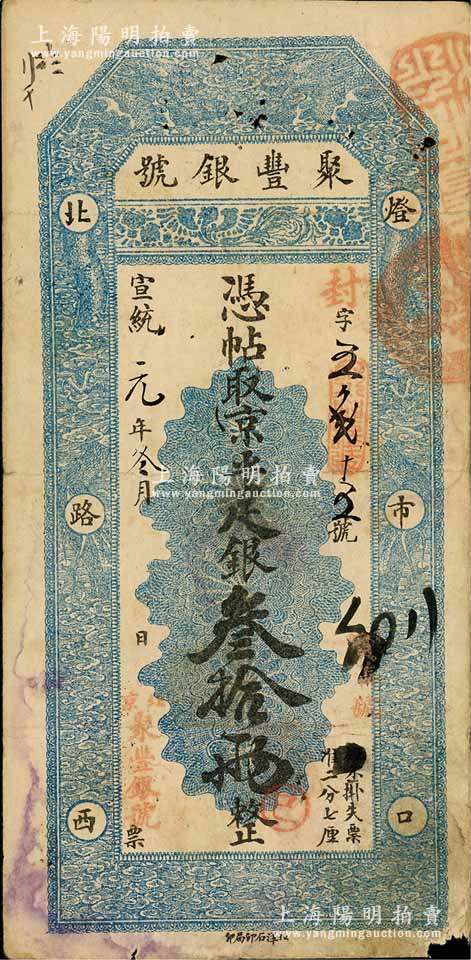 上海陽明拍賣
www.yangmingauction.com
聚豐銀號
燈市口
北路西
封字
十五號
憑帖取京平足銀叁拾兩整
掛失票
二分七厘
宣統元年冬月 日 票
京聚豐銀號
上海陽明拍賣
www.yangmingauction.com
洋石印局印
上海陽明拍賣
www.yangmingauction.com